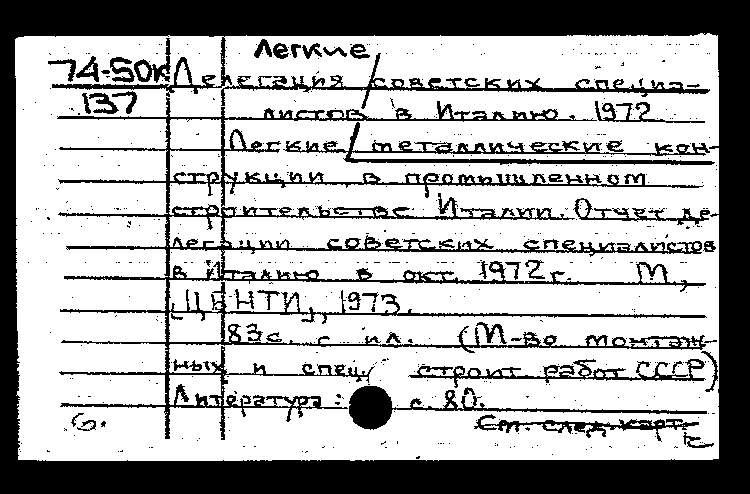 Легкие
74-50к Делегация советских специа-
137 листов в Италию. 1972
Легкие металлические кон-
струкции в промышленном
строительстве Италии. Отчет де-
легации советских специалистов
в Италию в окт. 1972 г. М.,
[ЦБНТИ], 1973.
83 с. с ил. (М-во монтаж-
ных и спец. строит. работ СССР)
Литература: с. 80.
См. след. карт.